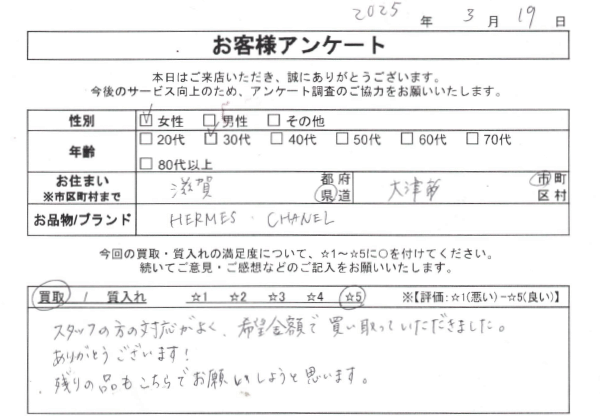 2025 年 3 月 19 日
お客様アンケート
本日はご来店いただき、誠にありがとうございます。
今後のサービス向上のため、アンケート調査のご協力をお願いいたします。
性別 ☑女性 □男性 □その他
年齢 □20代 ☑30代 □40代 □50代 □60代 □70代
□80代以上
お住まい 滋賀 都府 大津 市町
※市区町村まで 県道 区村
お品物/ブランド HERMES・CHANEL
今回の買取・質入れの満足度について、☆1～☆5に○を付けてください。
続いてご意見・ご感想などのご記入をお願いいたします。
買取 / 質入れ ☆1 ☆2 ☆3 ☆4 ☆5 ※【評価:☆1(悪い)－☆5(良い)】
スタッフの方の対応がよく、希望金額で買い取っていただきました。
ありがとうございます!
残りの品もこちらでお願いしようと思います。